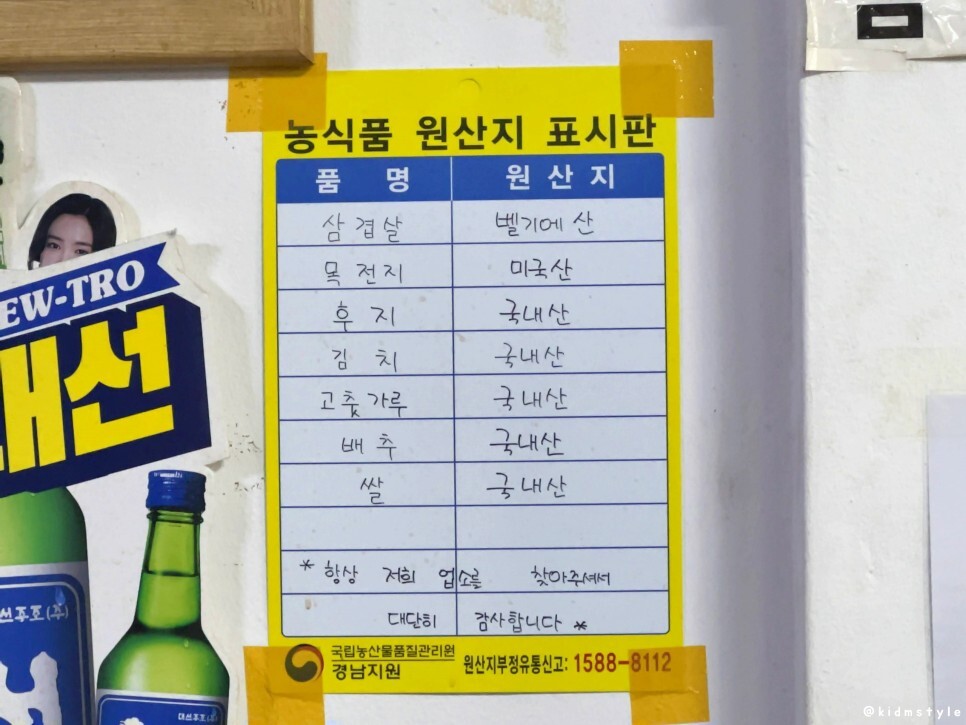 농식품 원산지 표시판
품 명 원 산 지
삼겹살 벨기에 산
목전지 미국산
후지 국내산
김치 국내산
고춧가루 국내산
배추 국내산
쌀 국내산
* 항상 저희 업소를 찾아주셔서
대단히 감사합니다 *
국립농산물품질관리원
경남지원
원산지부정유통신고: 1588-8112
EW-TRO
대선
대선주조(주)
@kidmstyle